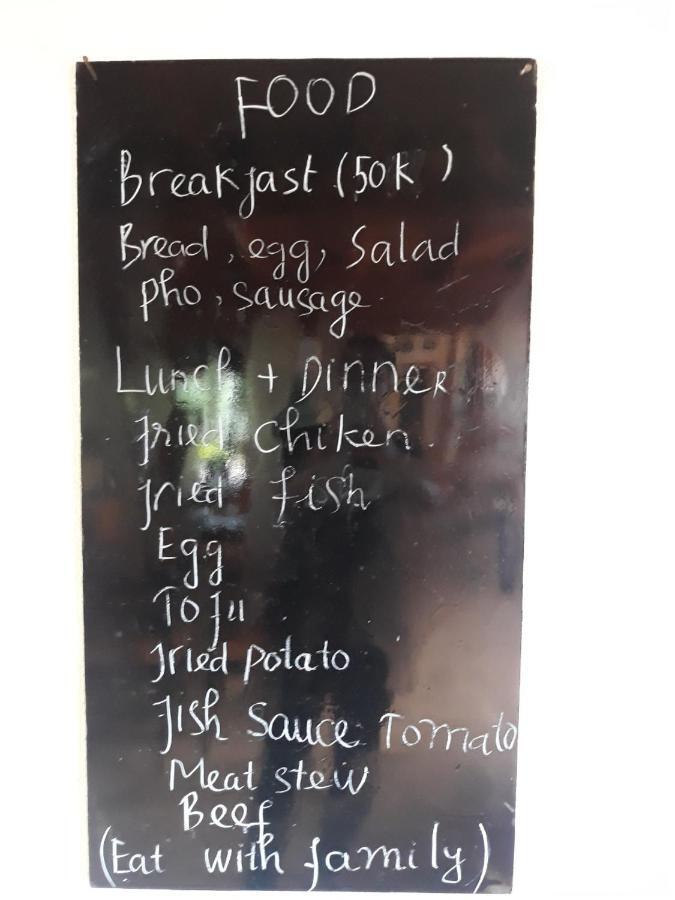 FOOD
Breakfast (50k)
Bread, egg, Salad
pho, sausage
Lunch + DinneR
fried chiken
fried fish
Egg
Tofu
fried potato
fish Sauce Tomato
Meat stew
Beef
(Eat with family)